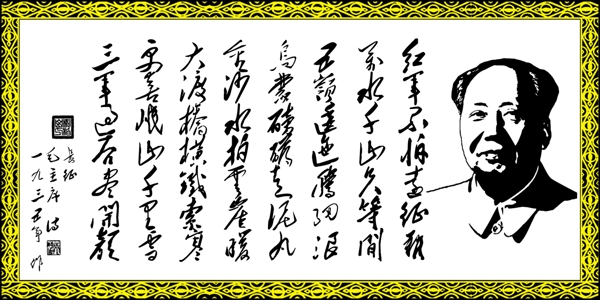 红军不怕远征难
万水千山只等闲
五嶺逶迤腾细浪
乌蒙磅礴走泥丸
金沙水拍云崖暖
大渡橋横鐵索寒
更喜岷山千里雪
三军过后尽开颜
长征
毛主席 诗
一九三五年 作